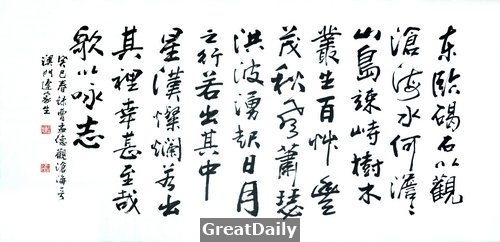 东臨碣石以觀
滄海水何澹〻
山島竦峙樹木
叢生百艸豐
茂秋風蕭瑟
洪波湧起日月
之行若出其中
星漢燦爛若出
其裡幸甚至哉
歌以咏志
癸巳春錄曹孟德觀滄海于
澳門家生
GreatDaily